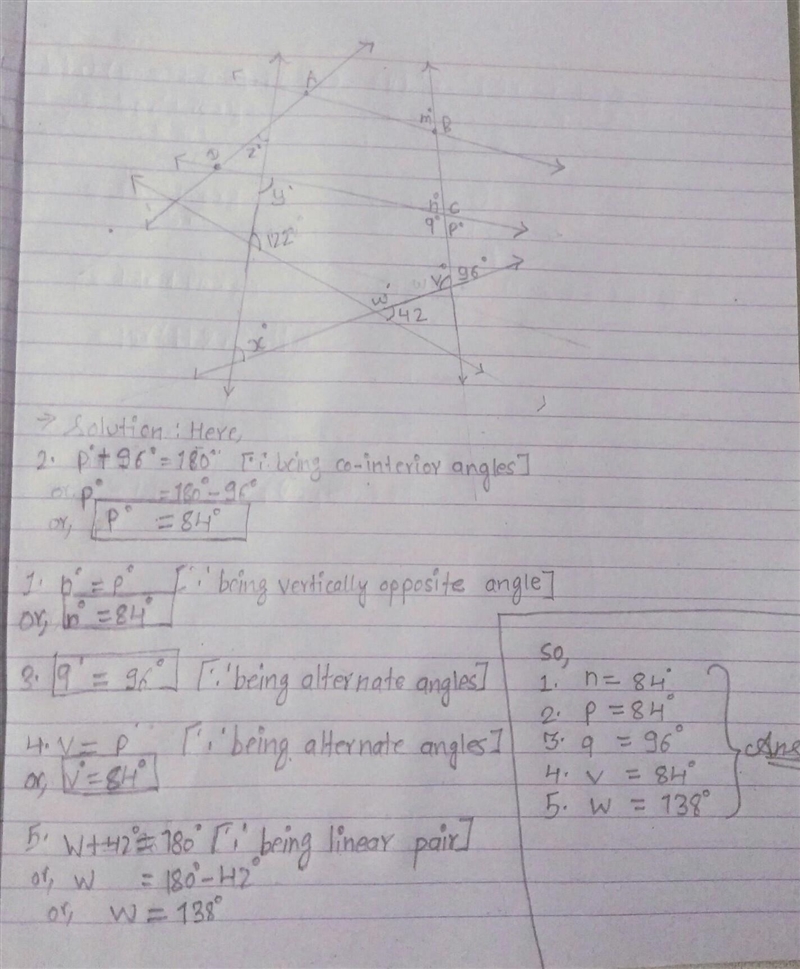 A
m° B
D z°
y°
n° C
q° p°
122°
v° 96°
w° 42
x°
⇒ Solution: Here,
2. p°+96°=180° [∵ being co-interior angles]
or p° =180°-96°
or, p° =84°
1. n°=p° [∵ being vertically opposite angle]
or, n°=84°
3. q° = 96° [∵ being alternate angles]
4. v= p° [∵ being alternate angles]
or, v°=84°
5. w+42°=180° [∵ being linear pair]
or, w =180°-42°
or, w=138°
so,
1. n=84°
2. p=84°
3. q =96°
4. v =84°
5. w =138°
Ans